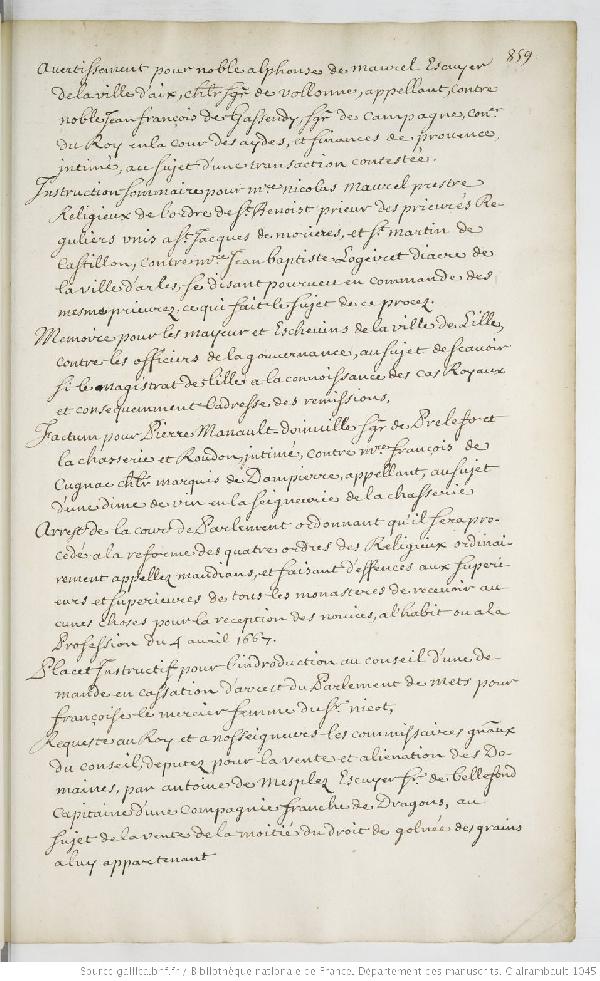 859
Avertissement pour noble alphonse de maurel Escuyer
de la ville d'aix, chlr sgr de vollonne, appellant, contre
noble Jean françois de Gassendy, sgr de Campagne, conr
du Roy en la cour des aydes, et finances de provence,
intimé, au sujet d'une transaction contestée.
Instruction sommaire pour mre nicolas Maurel prestre
Religieux de l'ordre de st Benoist prieur des prieurés Re-
guliers unis a st Jacques de morieres, et st martin de
Castillon, contre mre Jean baptiste Logeiret diacre de
la ville d'arles, se disant pourveu en commande des
mesme prieurez, ce qui fait le sujet de ce procez.
Memoire pour les mayeur et Eschevins de la ville de Lille,
contre les officiers de la gouvernance, au sujet de scavoir
si le magistrat de Lille a la connoissance des cas Royaux
et consequemment l'adresse des remissions,
Factum pour Pierre Manault doinville sgr de Prelefort
la chasserie et Roudon, intimé, contre mre françois de
Cugnac chlr marquis de Dampierre, appellant, au sujet
d'une dime de vin en la seigneurie de la chasserie
Arrest de la cour de Parlement ordonnant qu'il sera pro-
cedé a la reforme des quatre ordres des Religieux ordinai-
rement appellez mandians, et faisant deffences aux superi-
eurs et superieures de tous les monasteres de recevoir au-
cunes choses pour la reception des novices, a l'habit ou a la
Profession du 4 avril 1667.
Placet Instructif pour l'indroduction au conseil d'une de-
mande en cassation d'arrest du Parlement de Mets pour
françoise le mercier femme du sr. nicot,
Requeste au Roy et a nosseigneurs les commissaires gnaux
du conseil, deputez pour la vente et alienation des Do-
maines, par antoine de Mesplez Escuyer sr. de bellefond
Capitaine d'une Compagnie franche de Dragons, au
sujet de la vente de la moitié du droit de des grains
a luy appartenant
Source gallica.bnf.fr / Bibliothèque nationale de France. Département des manuscrits. Clairambault 1045